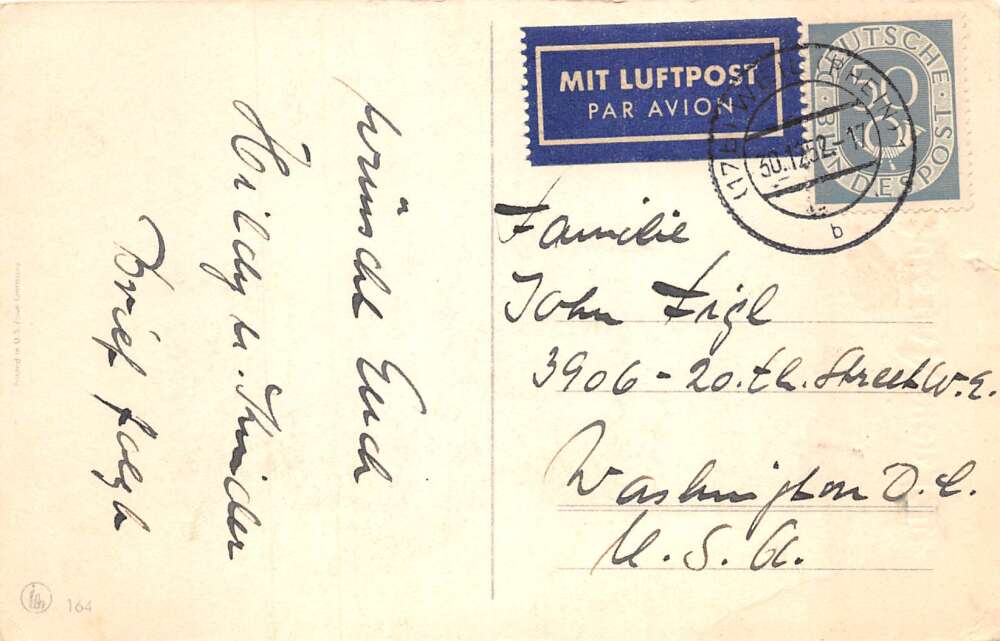 wünscht Euch
Hildy u. Kinder
Brief folgt
Printed in U.S. Zone Germany
164
MIT LUFTPOST
PAR AVION
(17b) WEIL (RHEIN)
30.12.52.-17
b
DEUTSCHE
BUNDESPOST
50
Familie
John Figl
3906-20.th. Street N.E.
Washington D.C.
U.S.A.